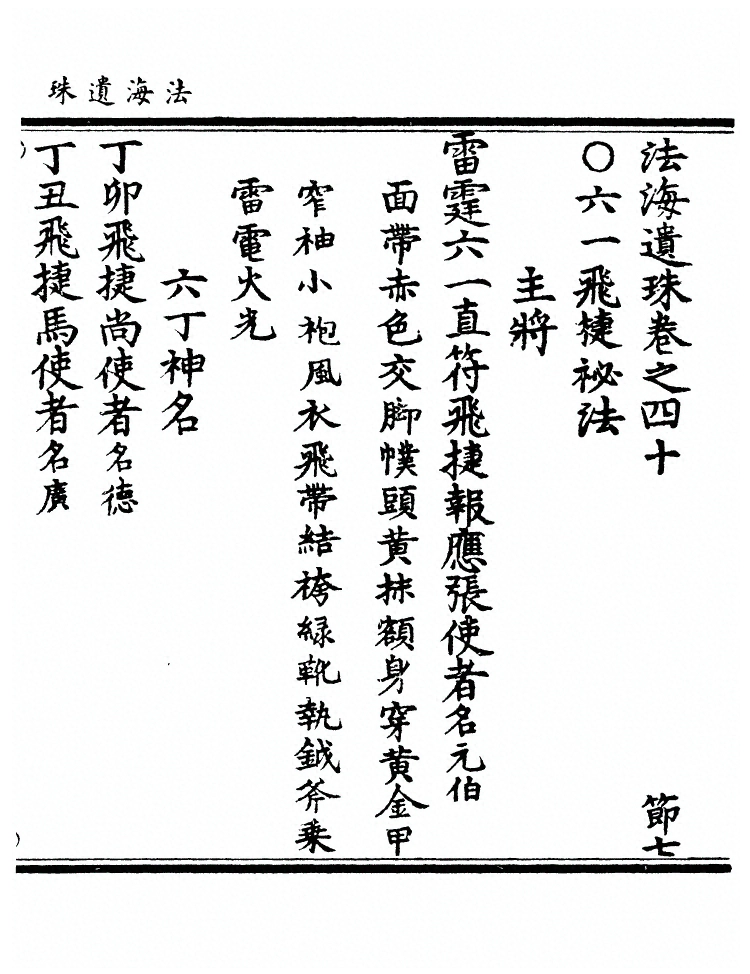 法海遺珠
法海遺珠卷之四十 節七
〇六一飛捷祕法
主將
雷霆六一直符飛捷報應張使者名元伯
面帶赤色交脚幞頭黃抹額身穿黃金甲
窄袖小袍風衣飛帶結袴綠靴執鉞斧乘
雷電火光
六丁神名
丁卯飛捷尚使者名德
丁丑飛捷馬使者名廣